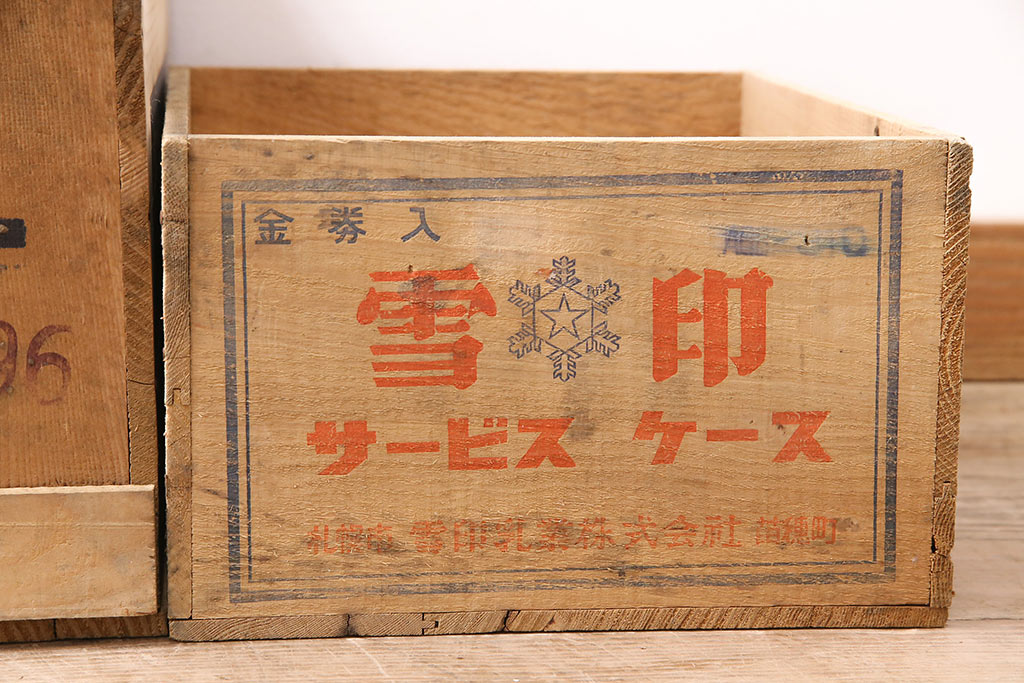 金券入
雪印
サービス ケース
札幌市 雪印乳業株式会社 苗穂町
96